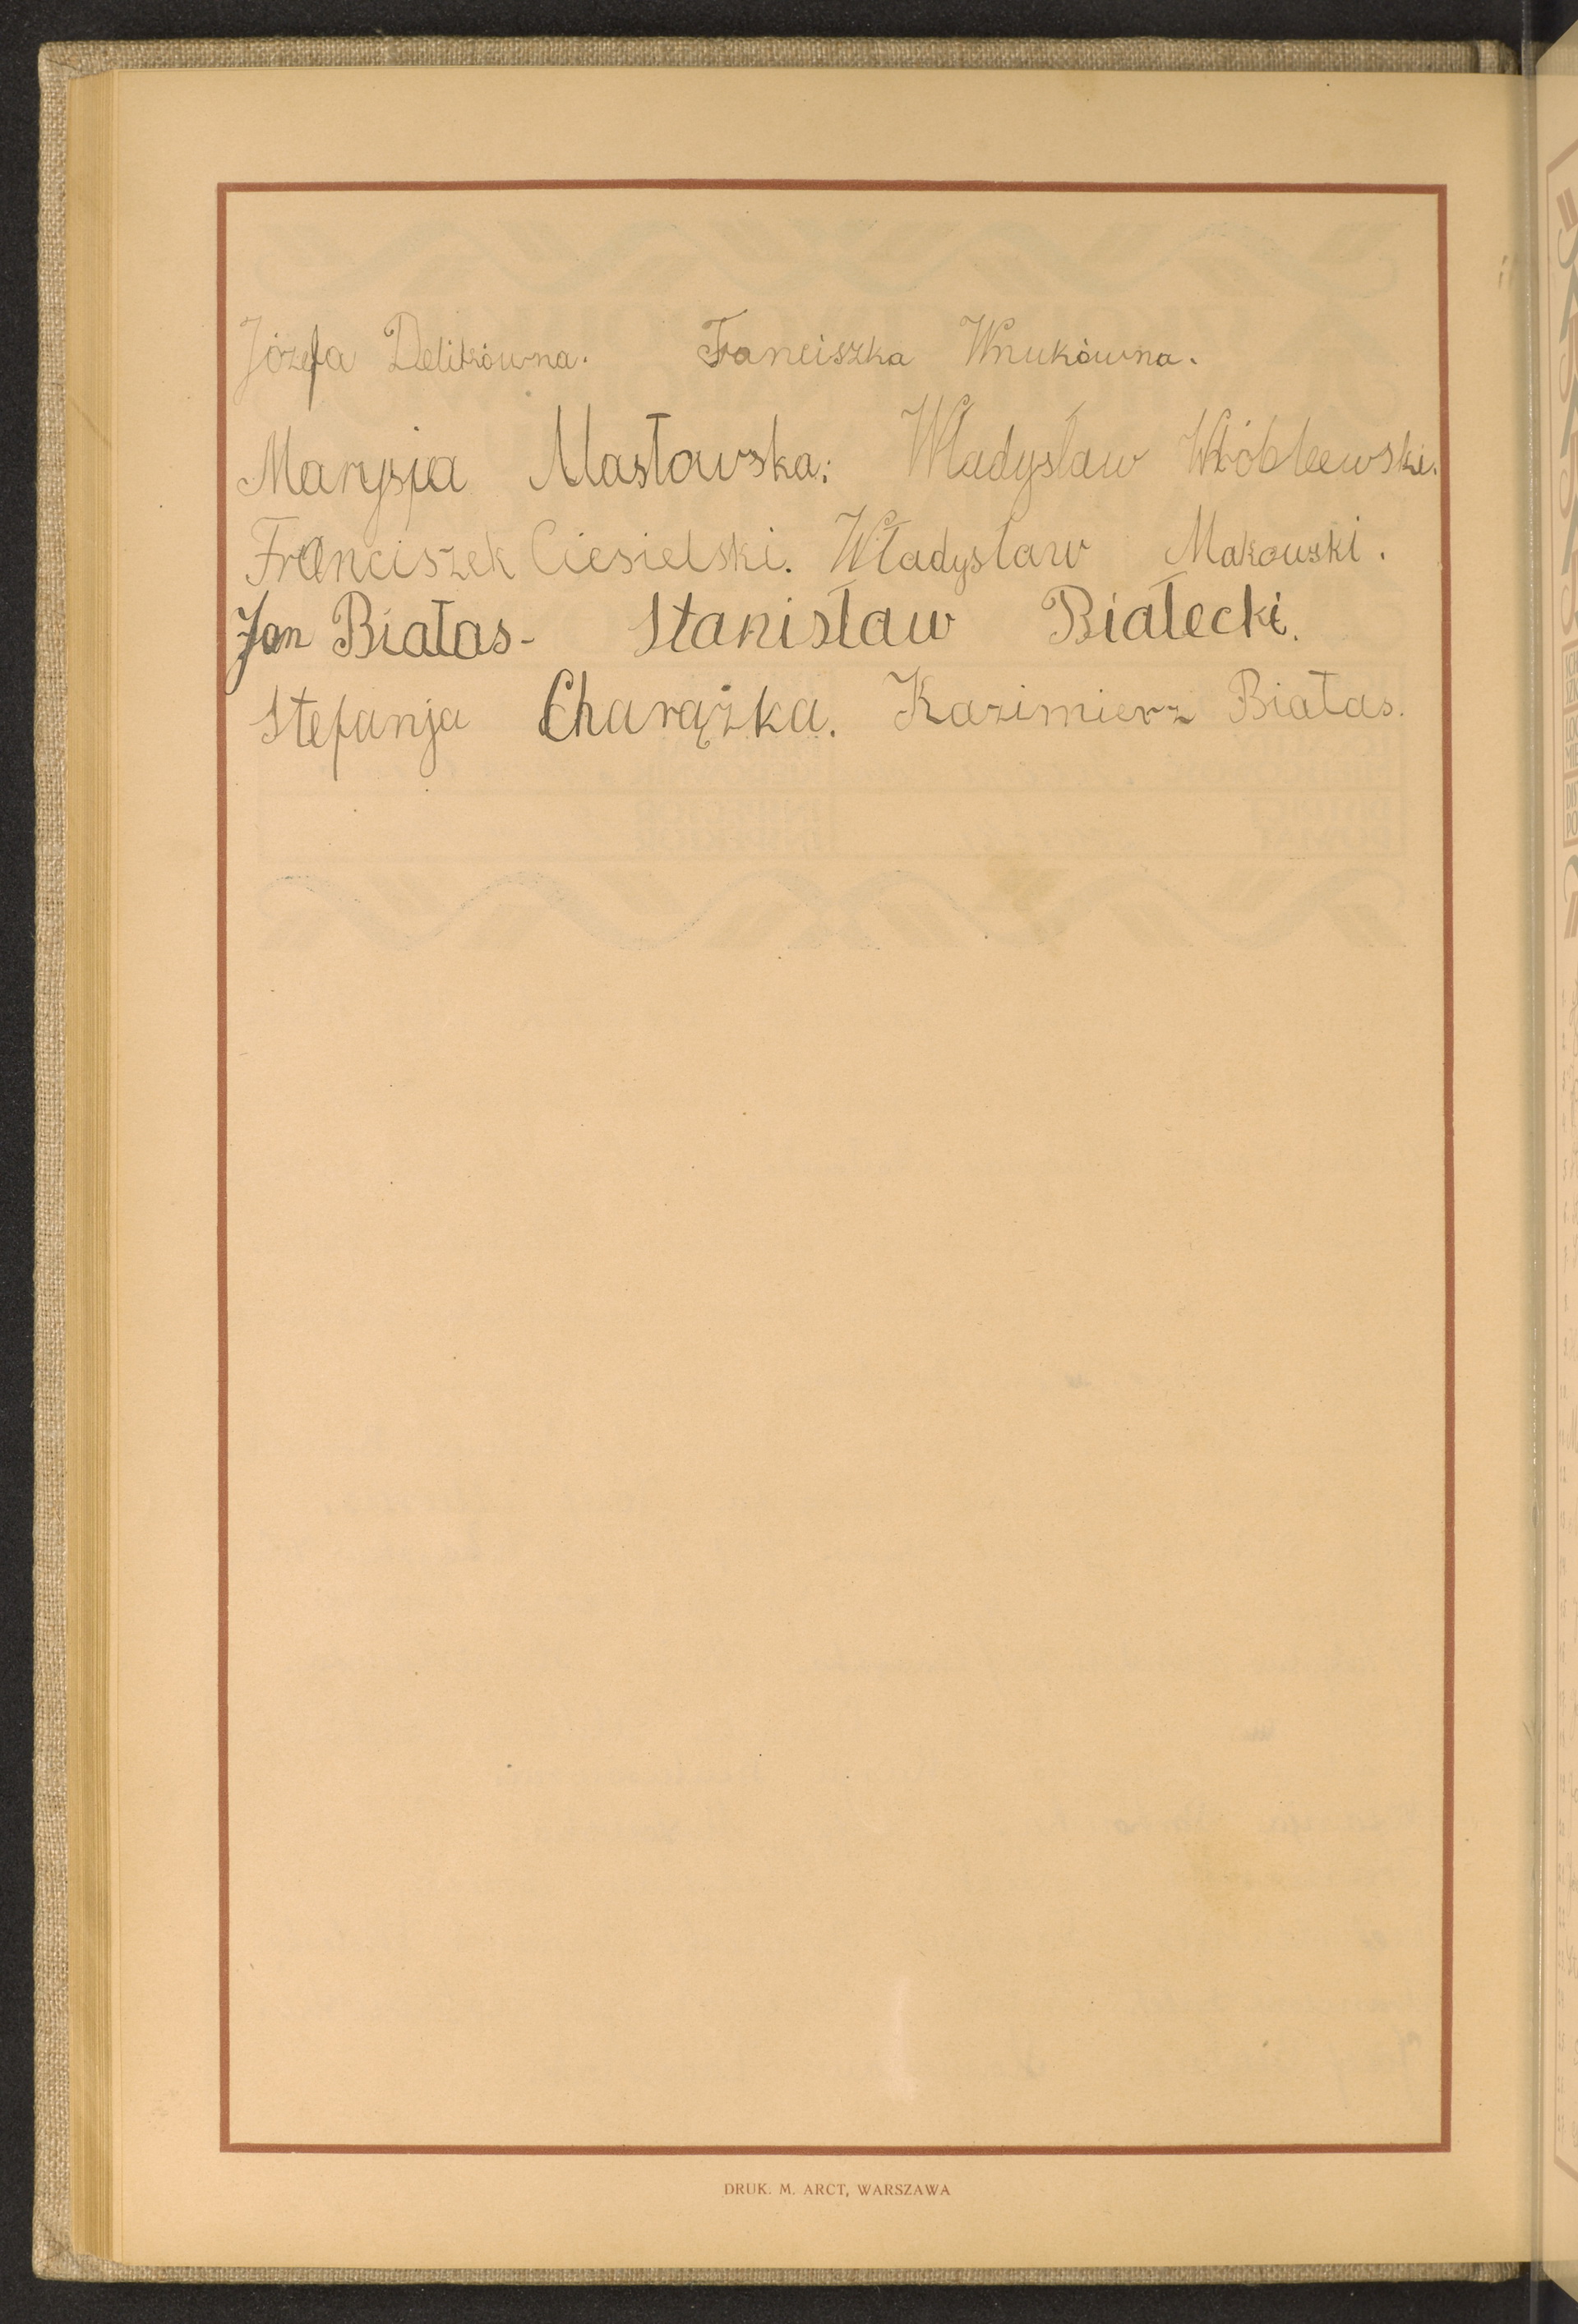 Józefa Delikówna. Franciszka Wnukówna.
Marysia Masłowska: Władysław Wróblewski.
Franciszek Ciesielski. Władysław Makowski.
Jan Białas- Stanisław Białecki.
Stefanja Charążka. Kazimierz Białas.
DRUK. M. ARCT, WARSZAWA